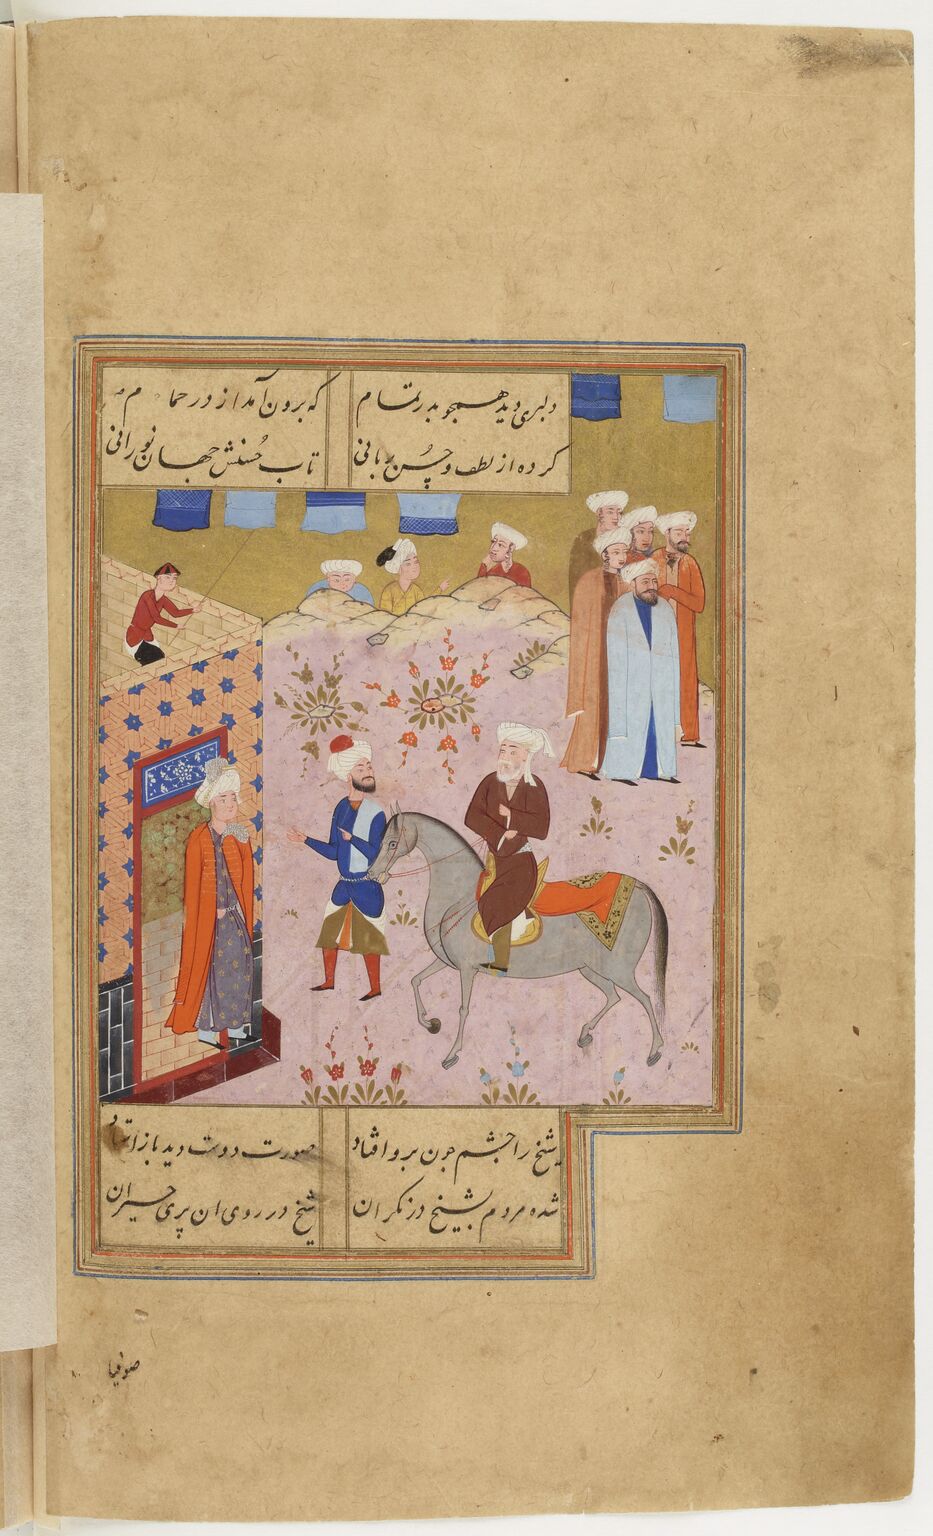 دلبری دید همچو بدر تمام که برون آمد از در حمام
کرده از لطف و حسن تاب حسنش جهان نورانی
شیخ را چشم چون برو افتاد صورت دوست دید باز
شده مردم بشیخ در نکران شیخ در روی ان پری حیران
صوفیا